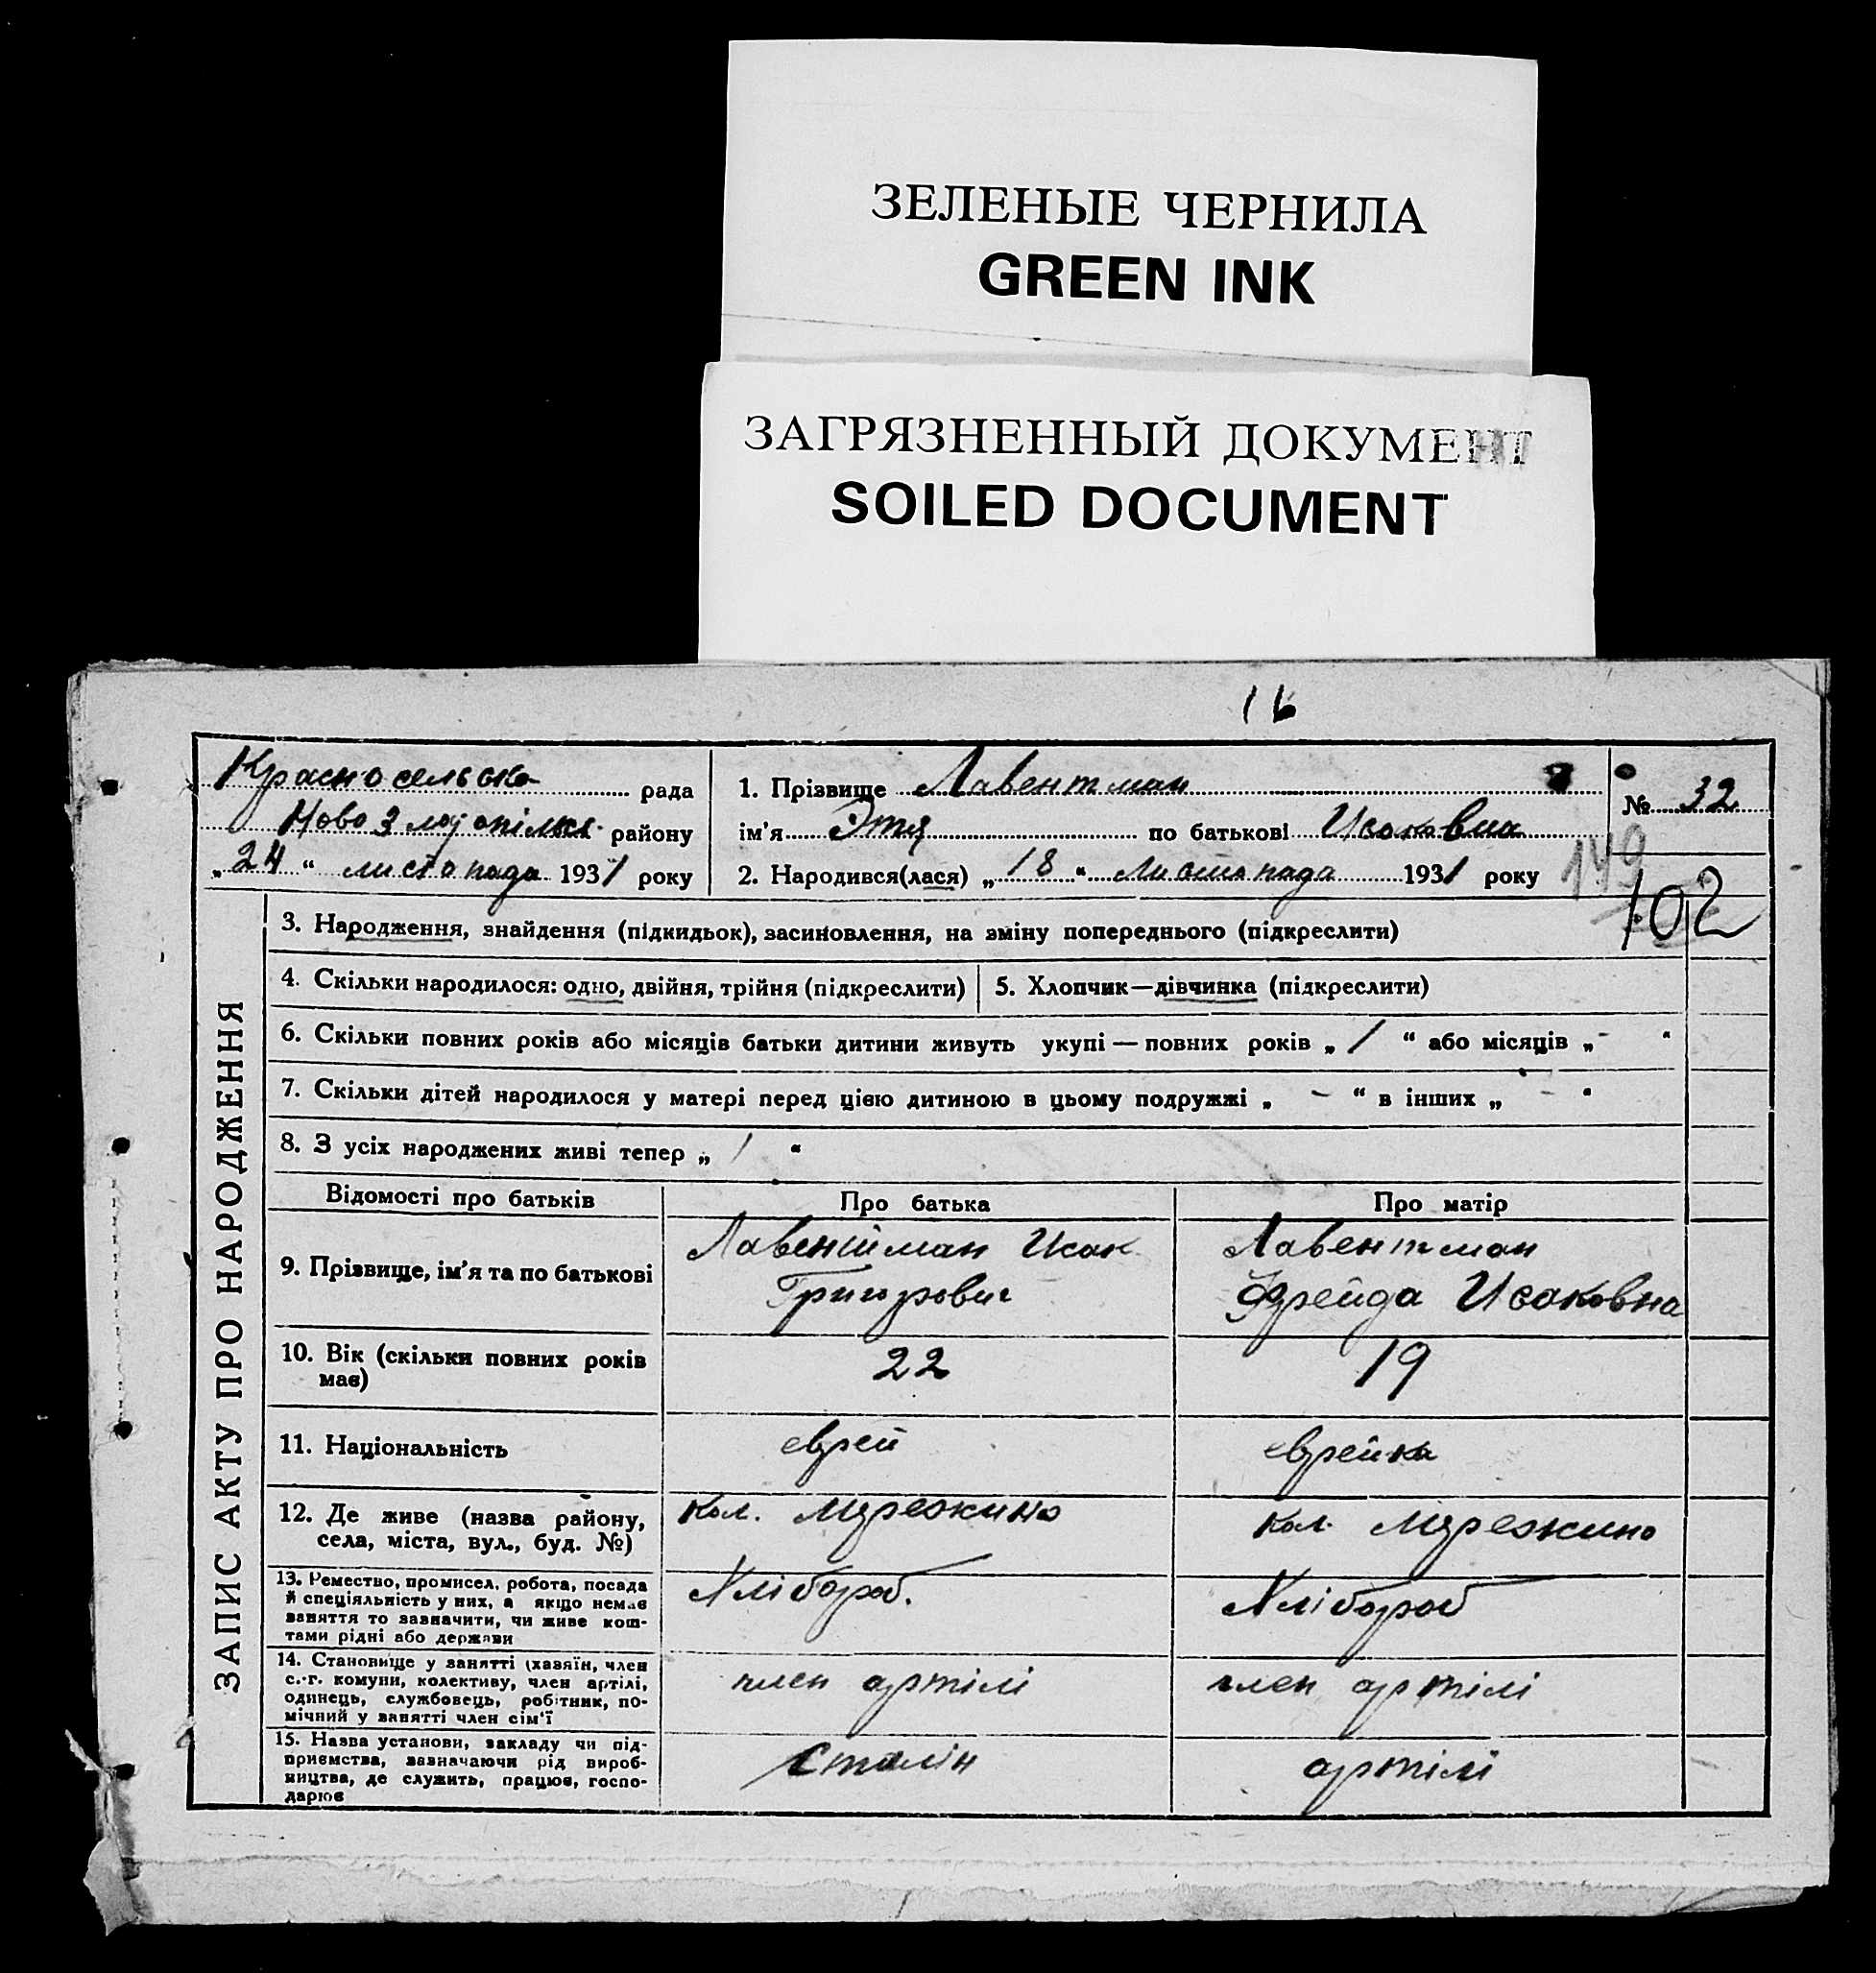 ЗЕЛЕНЫЕ ЧЕРНИЛА
GREEN INK
ЗАГРЯЗНЕННЫЙ ДОКУМЕНТ
SOILED DOCUMENT
16
Красносельська рада
Ново Златопільск. району
„24“ листопада 1931 року
1. Прізвище Лавентман
ім'я Этя по батькові Исаковна
2. Народився(лася) „18“ Листопада 1931 року
№ 32
149
102
ЗАПИС АКТУ ПРО НАРОДЖЕННЯ
3. Народження, знайдення (підкидьок), засиновлення, на зміну попереднього (підкреслити)
4. Скільки народилося: одно, двійня, трійня (підкреслити) 5. Хлопчик—дівчинка (підкреслити)
6. Скільки повних років або місяців батьки дитини живуть укупі — повних років „ 1 “ або місяців „ - “
7. Скільки дітей народилося у матері перед цією дитиною в цьому подружжі „ - “ в інших „ - “
8. З усіх народжених живі тепер „ 1 “
Відомості про батьків Про батька Про матір
9. Прізвище, ім'я та по батькові
Лавентман Исак
Григорович
Лавентман
Фрейда Исаковна
10. Вік (скільки повних років
має)
22
19
11. Національність
еврей
еврейка
12. Де живе (назва району,
села, міста, вул., буд. №)
кол. Мрежино
кол. Мрежино
13. Ремество, промисел, робота, посада
й спеціяльність у них, а якщо немає
заняття то зазначити, чи живе кош-
тами рідні або держави
Хлібороб.
Хлібороб
14. Становище у занятті (хазяїн, член
с.-г. комуни, колективу, член артілі,
одинець, службовець, робітник, по-
мічний у занятті член сім'ї
член артілі
член артілі
15. Назва установи, закладу чи під-
приємства, зазначаючи рід вироб-
ництва, де служить, працює, госпо-
дарює
Сталін
артілі